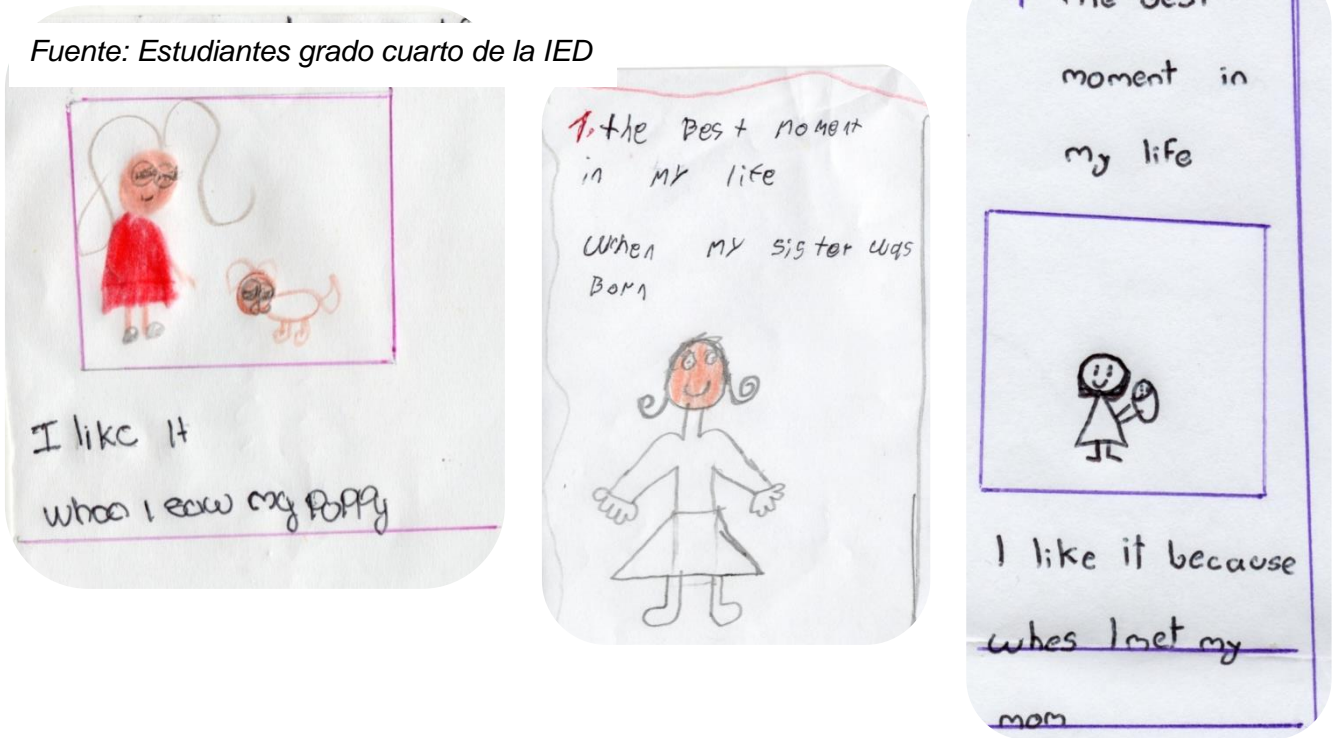 Fuente: Estudiantes grado cuarto de la IED
I like It
when I saw my Poppy
1. the Best moment
in my life
When my sister was
Born
the best
moment in
my life
I like it because
whes I met my
mom